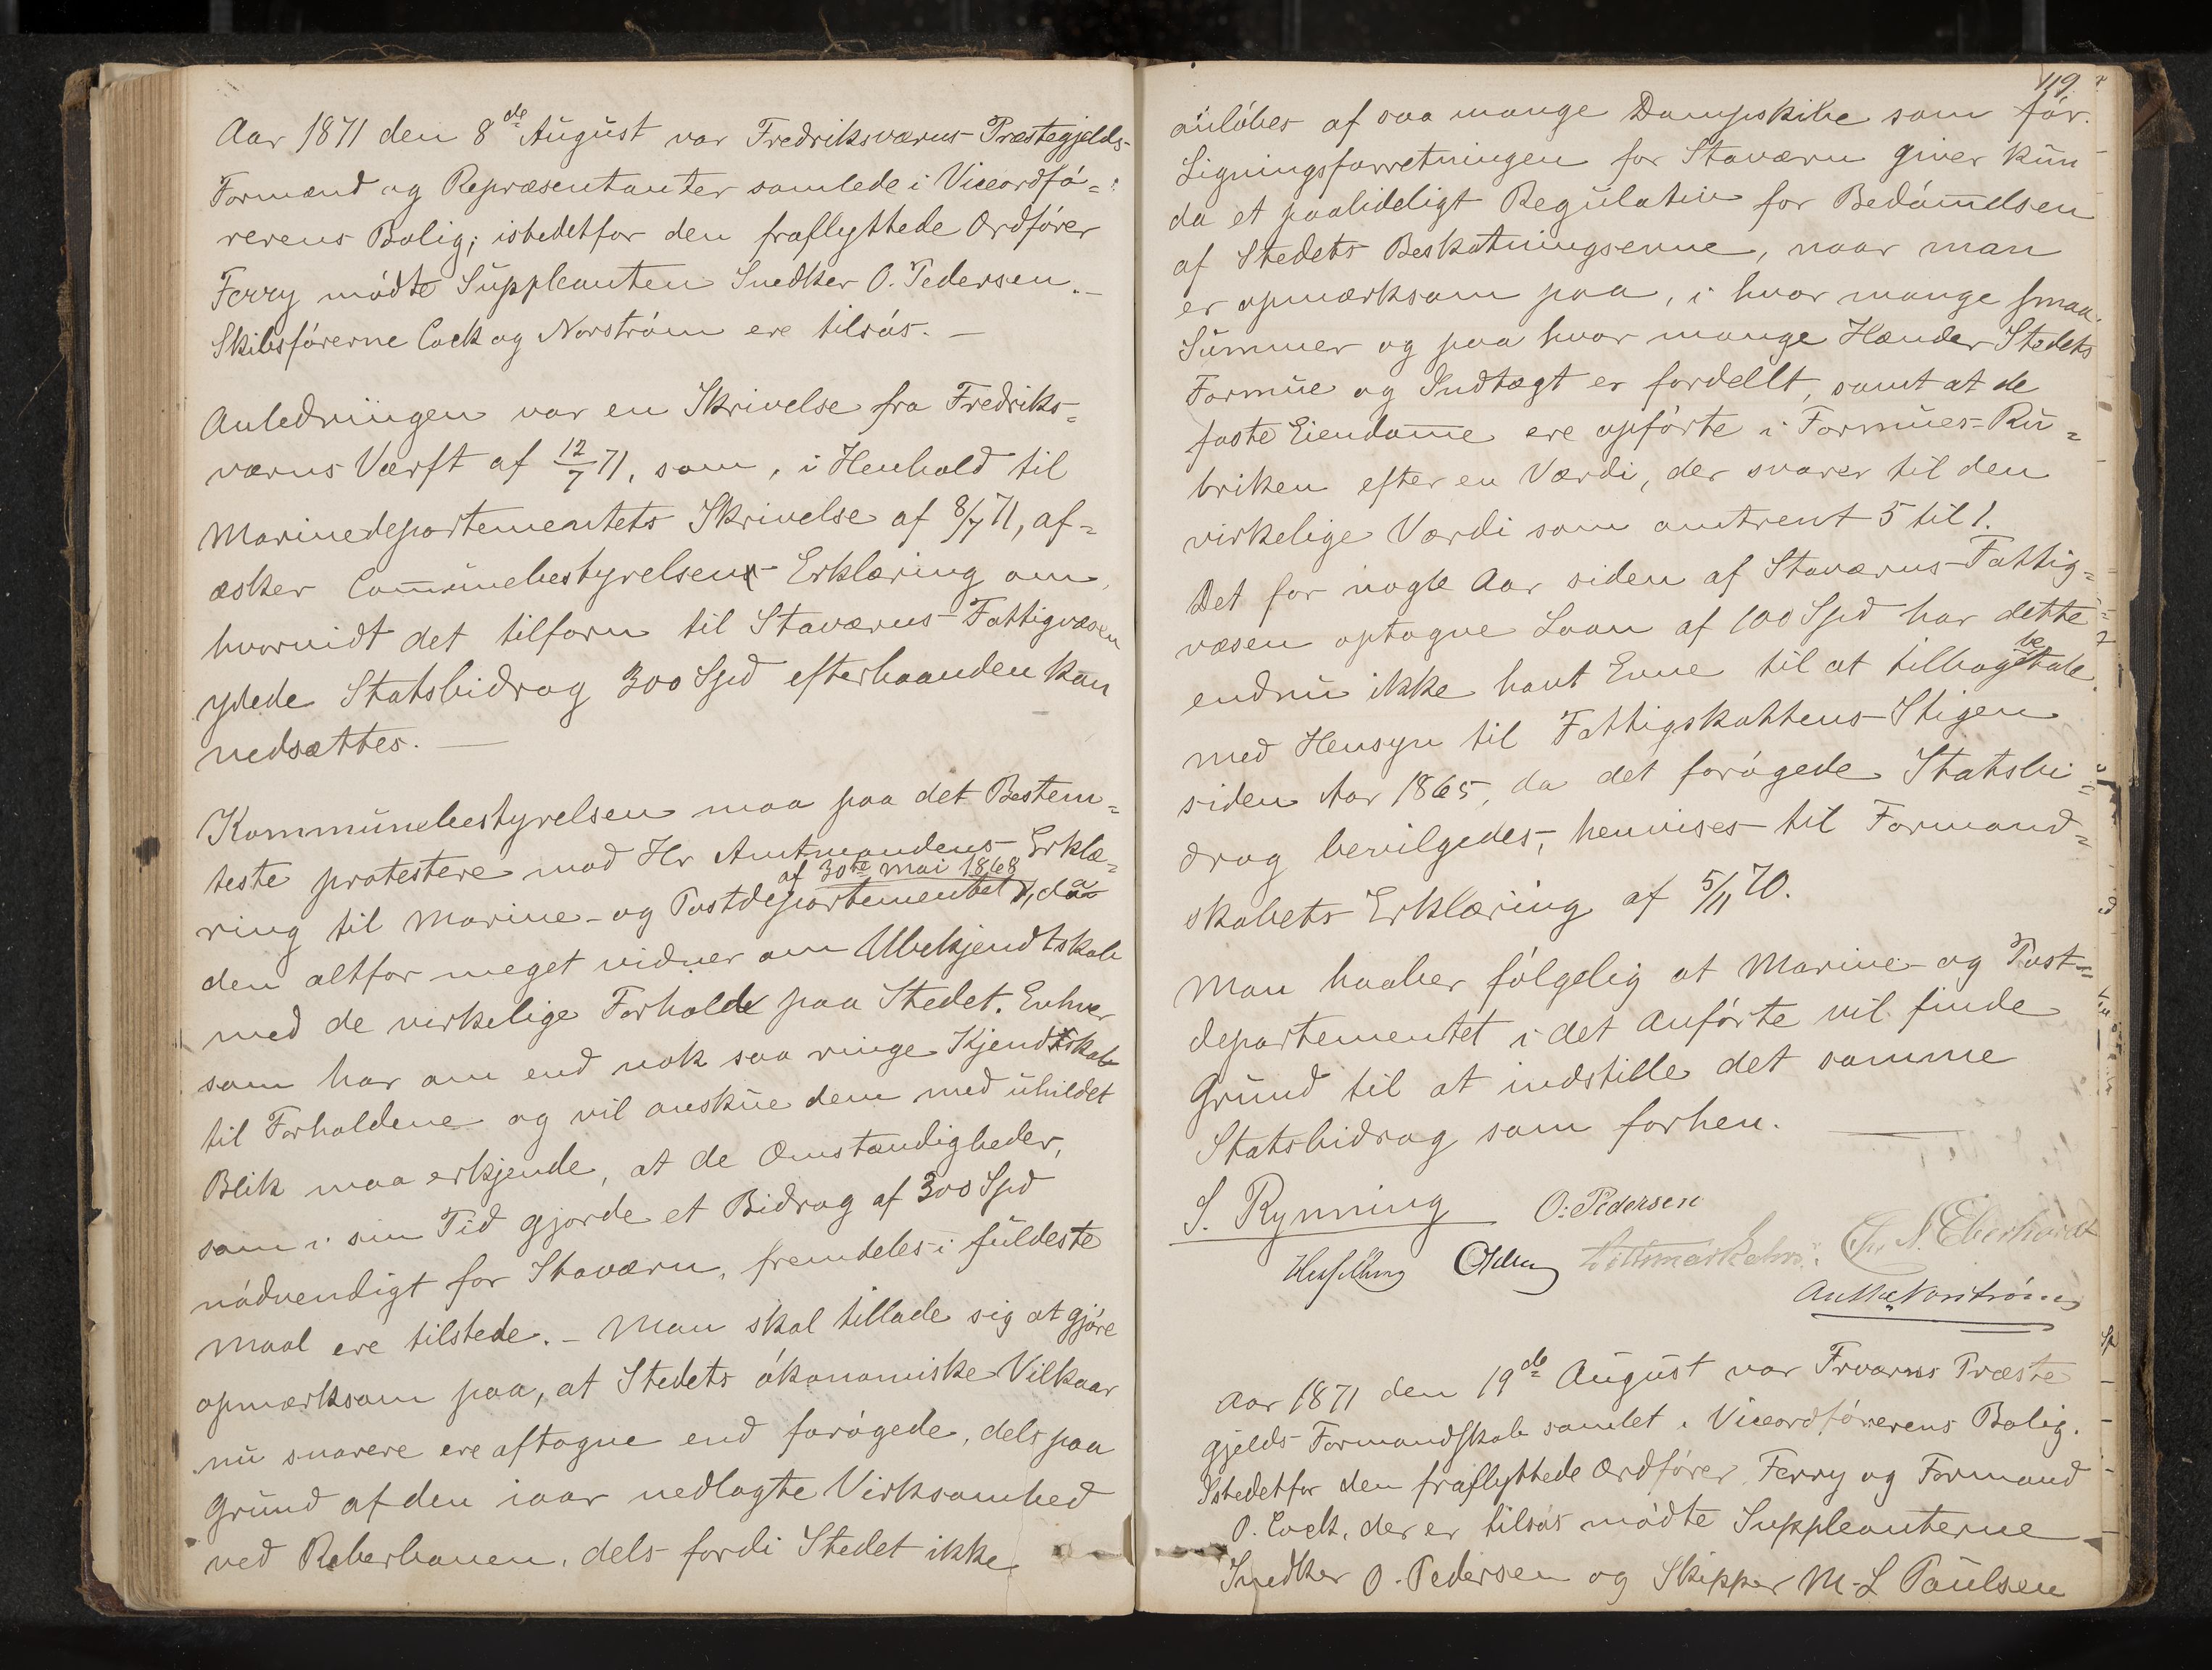 Aar 1871 den 8de August var Fredriksværns Præstegjelds-
Formænd og Repræsentanter samlede i Viceordfö=
rerens Bolig; istedetfor den fraflyttede Ordförer
Ferry mödte Suppleanten Snedker O. Pedersen. –
Skibsförerne Cock og Norström ere tilsös. –
Anledningen var en Skrivelse fra Fredriks=
værns Værft af 12/7 71, som, i Henhold til
Marinedepartementets Skrivelse af 8/7 71, af=
æsker Communebestyrelsens Erklæring om,
hvorvidt det tilforn til Staværns Fattigvæsen
ydede Statsbidrag 300 Spd efterhaanden kan
nedsættes. –
Kommunebestyrelsen maa paa det Bestem=
teste protestere mod Hr Amtmandens Erklæ=
af 30te Mai 1868
ring til Marine- og Postdepartementet, da
den altfor meget vidner om Ubekjendtskab
med de virkelige Forholde paa Stedet. Enhver
som har om end nok saa ringe Kjendskab
til Forholdene og vil anskue dem med uhildet
Blik maa erkjende, at de Omstændigheder,
som i sin Tid gjorde et Bidrag af 300 Spd
nödvendigt for Staværn, fremdeles i fuldeste
Maal ere tilstede. – Man skal tillade sig at gjöre
opmærksom paa, at Stedets ökonomiske Vilkaar
nu snarere ere aftagne end forögede, dels paa
Grund af den iaar nedlagte Virksomhed
ved Reberbanen, dels fordi Stedet ikke
119.
anlöbes af saa mange Dampskibe som för.
Ligningsforretningen for Staværn giver kun
da et paalideligt Regulativ for Bedömelsen
af Stedets Beskatningsevne, naar man
er opmærksom paa, i hvor mange smaa
Summer og paa hvor mange Hænder Stedets
Formue og Indtægt er fordellt, samt at de
faste Eiendome ere opförte i Formues-Ru=
briken efter en Værdi, der svarer til den
virkelige Værdi som omtrent 5 til 1.
Det for nogle Aar siden af Staværns Fattig=
væsen optagne Laan af 100 Spd har dette
be
endnu ikke havt Evne til at tilbagetale.
Med Hensyn til Fattigskattens Stigen
siden Aar 1865, da det forögede Statsbi=
drag bevilgedes, henvises til Formand=
skabets Erklæring af 5/11 70.
Man haaber fölgelig at Marine- og Post=
departementet i det Anförte vil finde
Grund til at indstille det samme
Statsbidrag som forhen.
S. Rynning O. Pedersen
Chr. N. Eberhardt
Norström
Aar 1871 den 19de August var Frværns Præste
gjelds Formandskab samlet i Viceordförerens Bolig.
Istedetfor den fraflyttede Ordförer Ferry og Formand
O. Cock, der er tilsös mödte Suppleanterne
Snedker O. Pedersen og Skipper M. L Paulsen